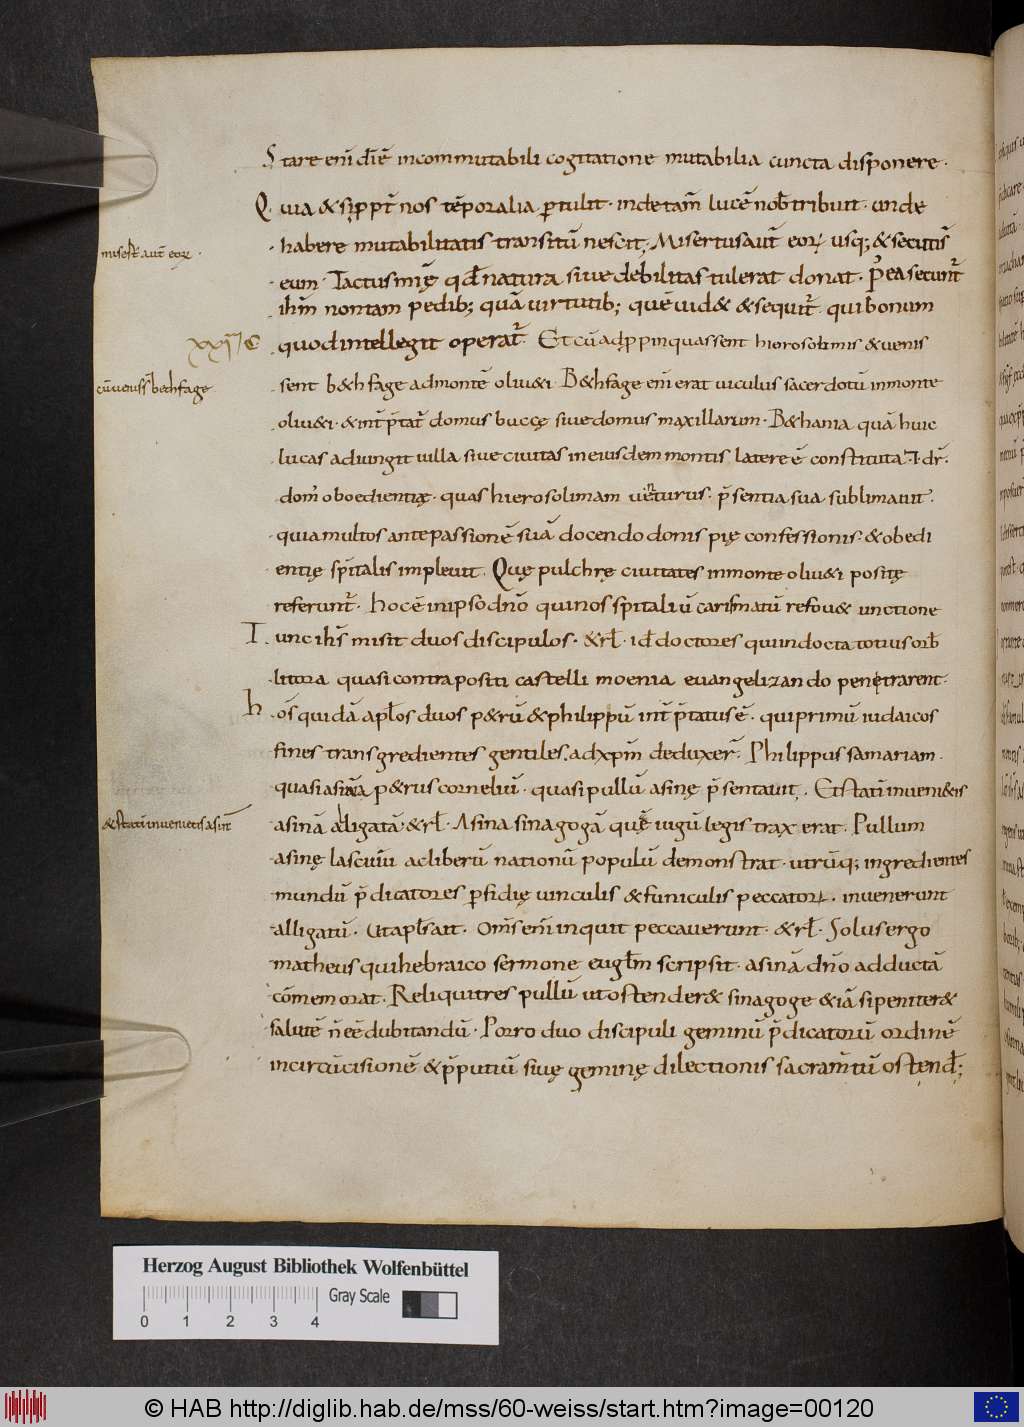 Stare eni᷑ diē incommutabili cogitatione mutabilia cuncta disponere.
Quia & si ꝓpt̄ nos tēporalia ꝑtulit. inde tam̄ lucē nob̄ tribuit. unde
habere mutabilitatis transitū nescit; Misertus aut̄ eoꝝ. usq; & secuti s̄
misert̄ aut̄ eoꝝ.
eum. Tactus mīę qđ natura siue debilitas tulerat donat. P᷑ ea secunt᷑
ih̄m non tam pedib; quā uirtutib; quē uid& & sequit᷑. qui bonum
xxiC quod intellegit operat᷑. Et cū adpropinquassent hierosolimis & uenis
sent b&hfage ad montē oliu&i. B&hfage eni᷑ erat uiculus sacerdotū in monte
cū ueniss̄ bethfage
oliu&i. & int̄ p̄tat᷑ domus buccę siue domus maxillarum. B&hania quā huic
lucas adiungit uilla siue ciuitas in eiusdem montis latere ē constituta. I. dr̄.
dom᷒ oboedientię. quas hierosolimam uenturus. p̄sentia sua sublimauit.
quia multos ante passionē suā docendo donis pię confessionis. & obedi
entię sp̄italis impleuit. Quę pulchrę ciuitates in monte oliu&i positę
referunt᷑. hoc ē in ipso dn̄o qui nos sp̄italiū carismatū refou& unctione
Tunc ih̄s misit duos discipulos. & rł. id doctores qui indocta totius orb̄
litora quasi contra positi castelli moenia euangelizando penetrarent.
hos̄ quidā apłos duos p&rū & philippū int̄ p̄tatus ē. qui primū iudaicos
fines transgredientes gentiles. ad xpm̄ deduxer̄. Philippus samariam.
quasi asinā p&rus corneliū. quasi pullū asinę p̄sentauit. Et statī inueni&is
& statī inuenietis asin̄
asinā alligatā & rł. Asina sinagogā quę iugū legis traxerat. Pullum
asinę lasciuū ac liberū nationū populū demonstrat. utrūq; ingredientes
mundū p̄dicatores ꝑfidię uinculis & funiculis peccatoꝝ. inuenerunt
alligatū. Ut apłs ait. Om̄s eni᷑ inquit peccauerunt. & rł. Solus ergo
matheus qui hebraico sermone eugłm scripsit. asinā dn̄o adductā
cōmemorat. Reliqui tres pullū ut ostender& sinagoge & iā si peniter&
salutē n̄ eē dubitandū. Porro duo discipuli geminū p̄dicatorū ordinē
in circūcisionē & p̄putiū siue geminę dilectionis sacram̄tū ostend̄;
Herzog August Bibliothek Wolfenbüttel
Gray Scale
0 1 2 3 4
© HAB http://diglib.hab.de/mss/60-weiss/start.htm?image=00120